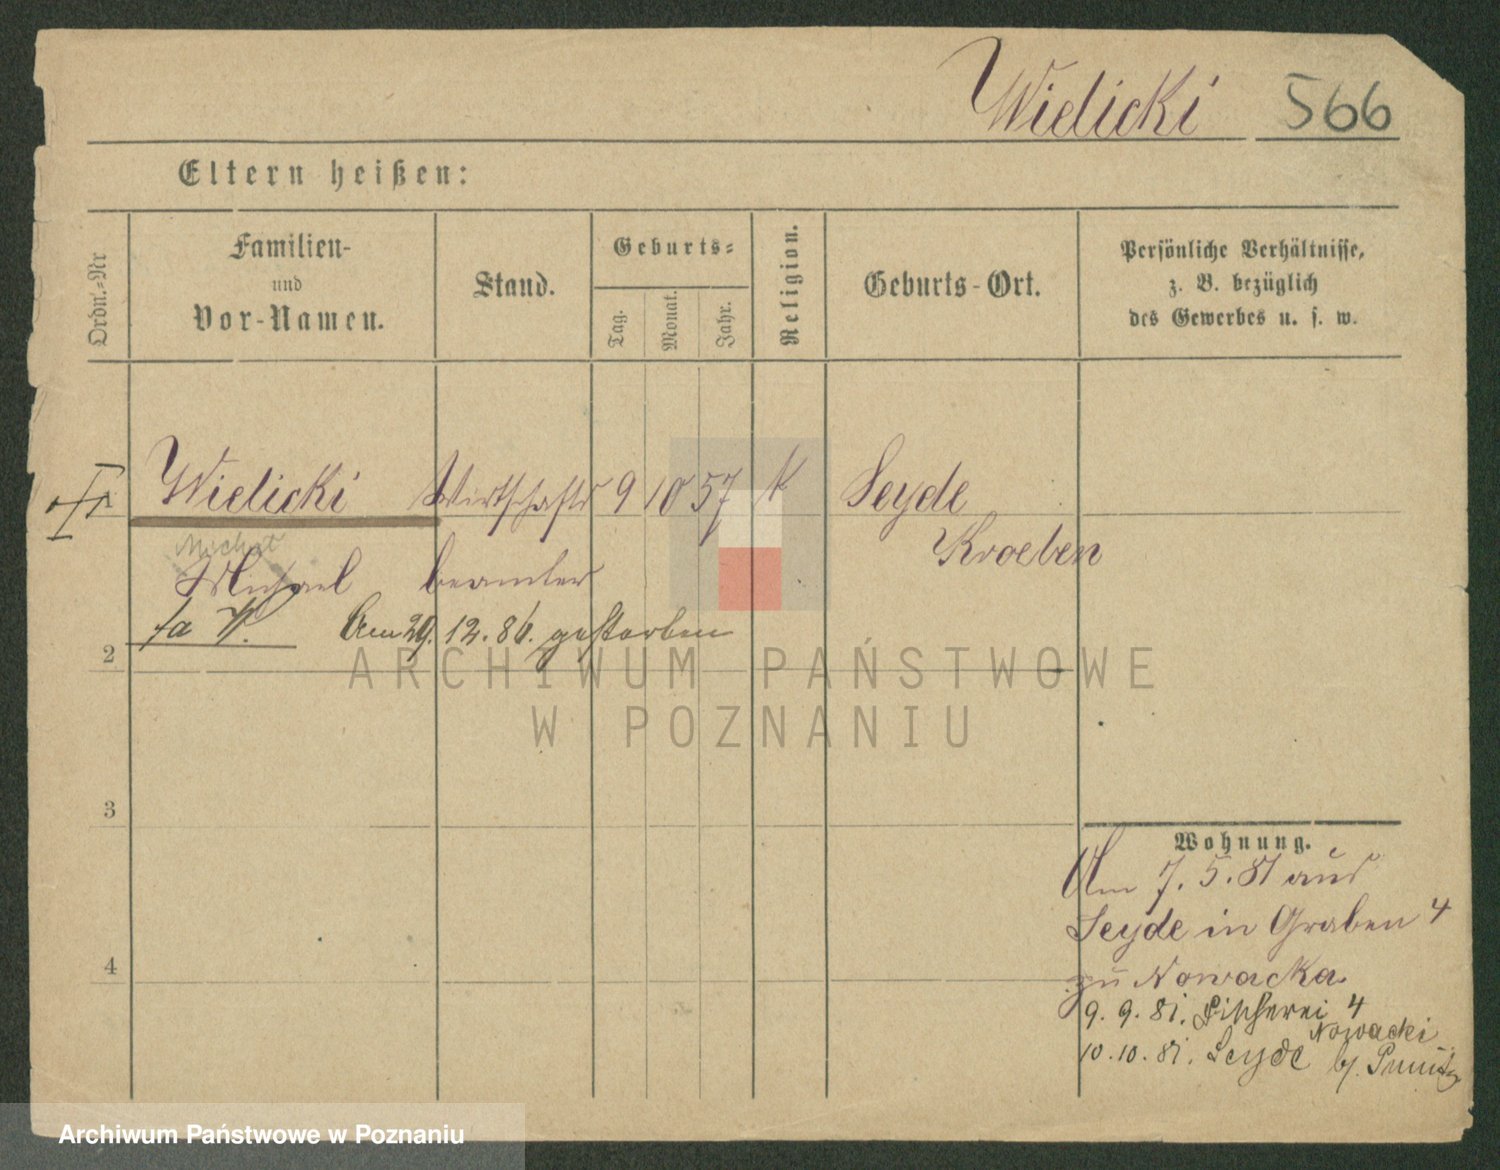 Wielicki 566
Eltern heißen:
Ordn.-Nr
Familien-
und
Vor-Namen.
Stand.
Geburts-
Tag.
Monat.
Jahr.
Religion.
Geburts-Ort.
Persönliche Verhältnisse,
z. B. bezüglich
des Gewerbes u. s. w.
1 Wielicki Wirtschafts 9 10 57 k Seyde
Kroeben
Michael beamter
Am 29.12.86. gestorben
2
3
4
Wohnung.
Am 7.5.81 aus
Seyde in Graben 4
zu Nowacka
9.9.81. Fischerei 4
Nowacki
10.10.81. Seyde b/.
ARCHIWUM PAŃSTWOWE
W POZNANIU
Archiwum Państwowe w Poznaniu